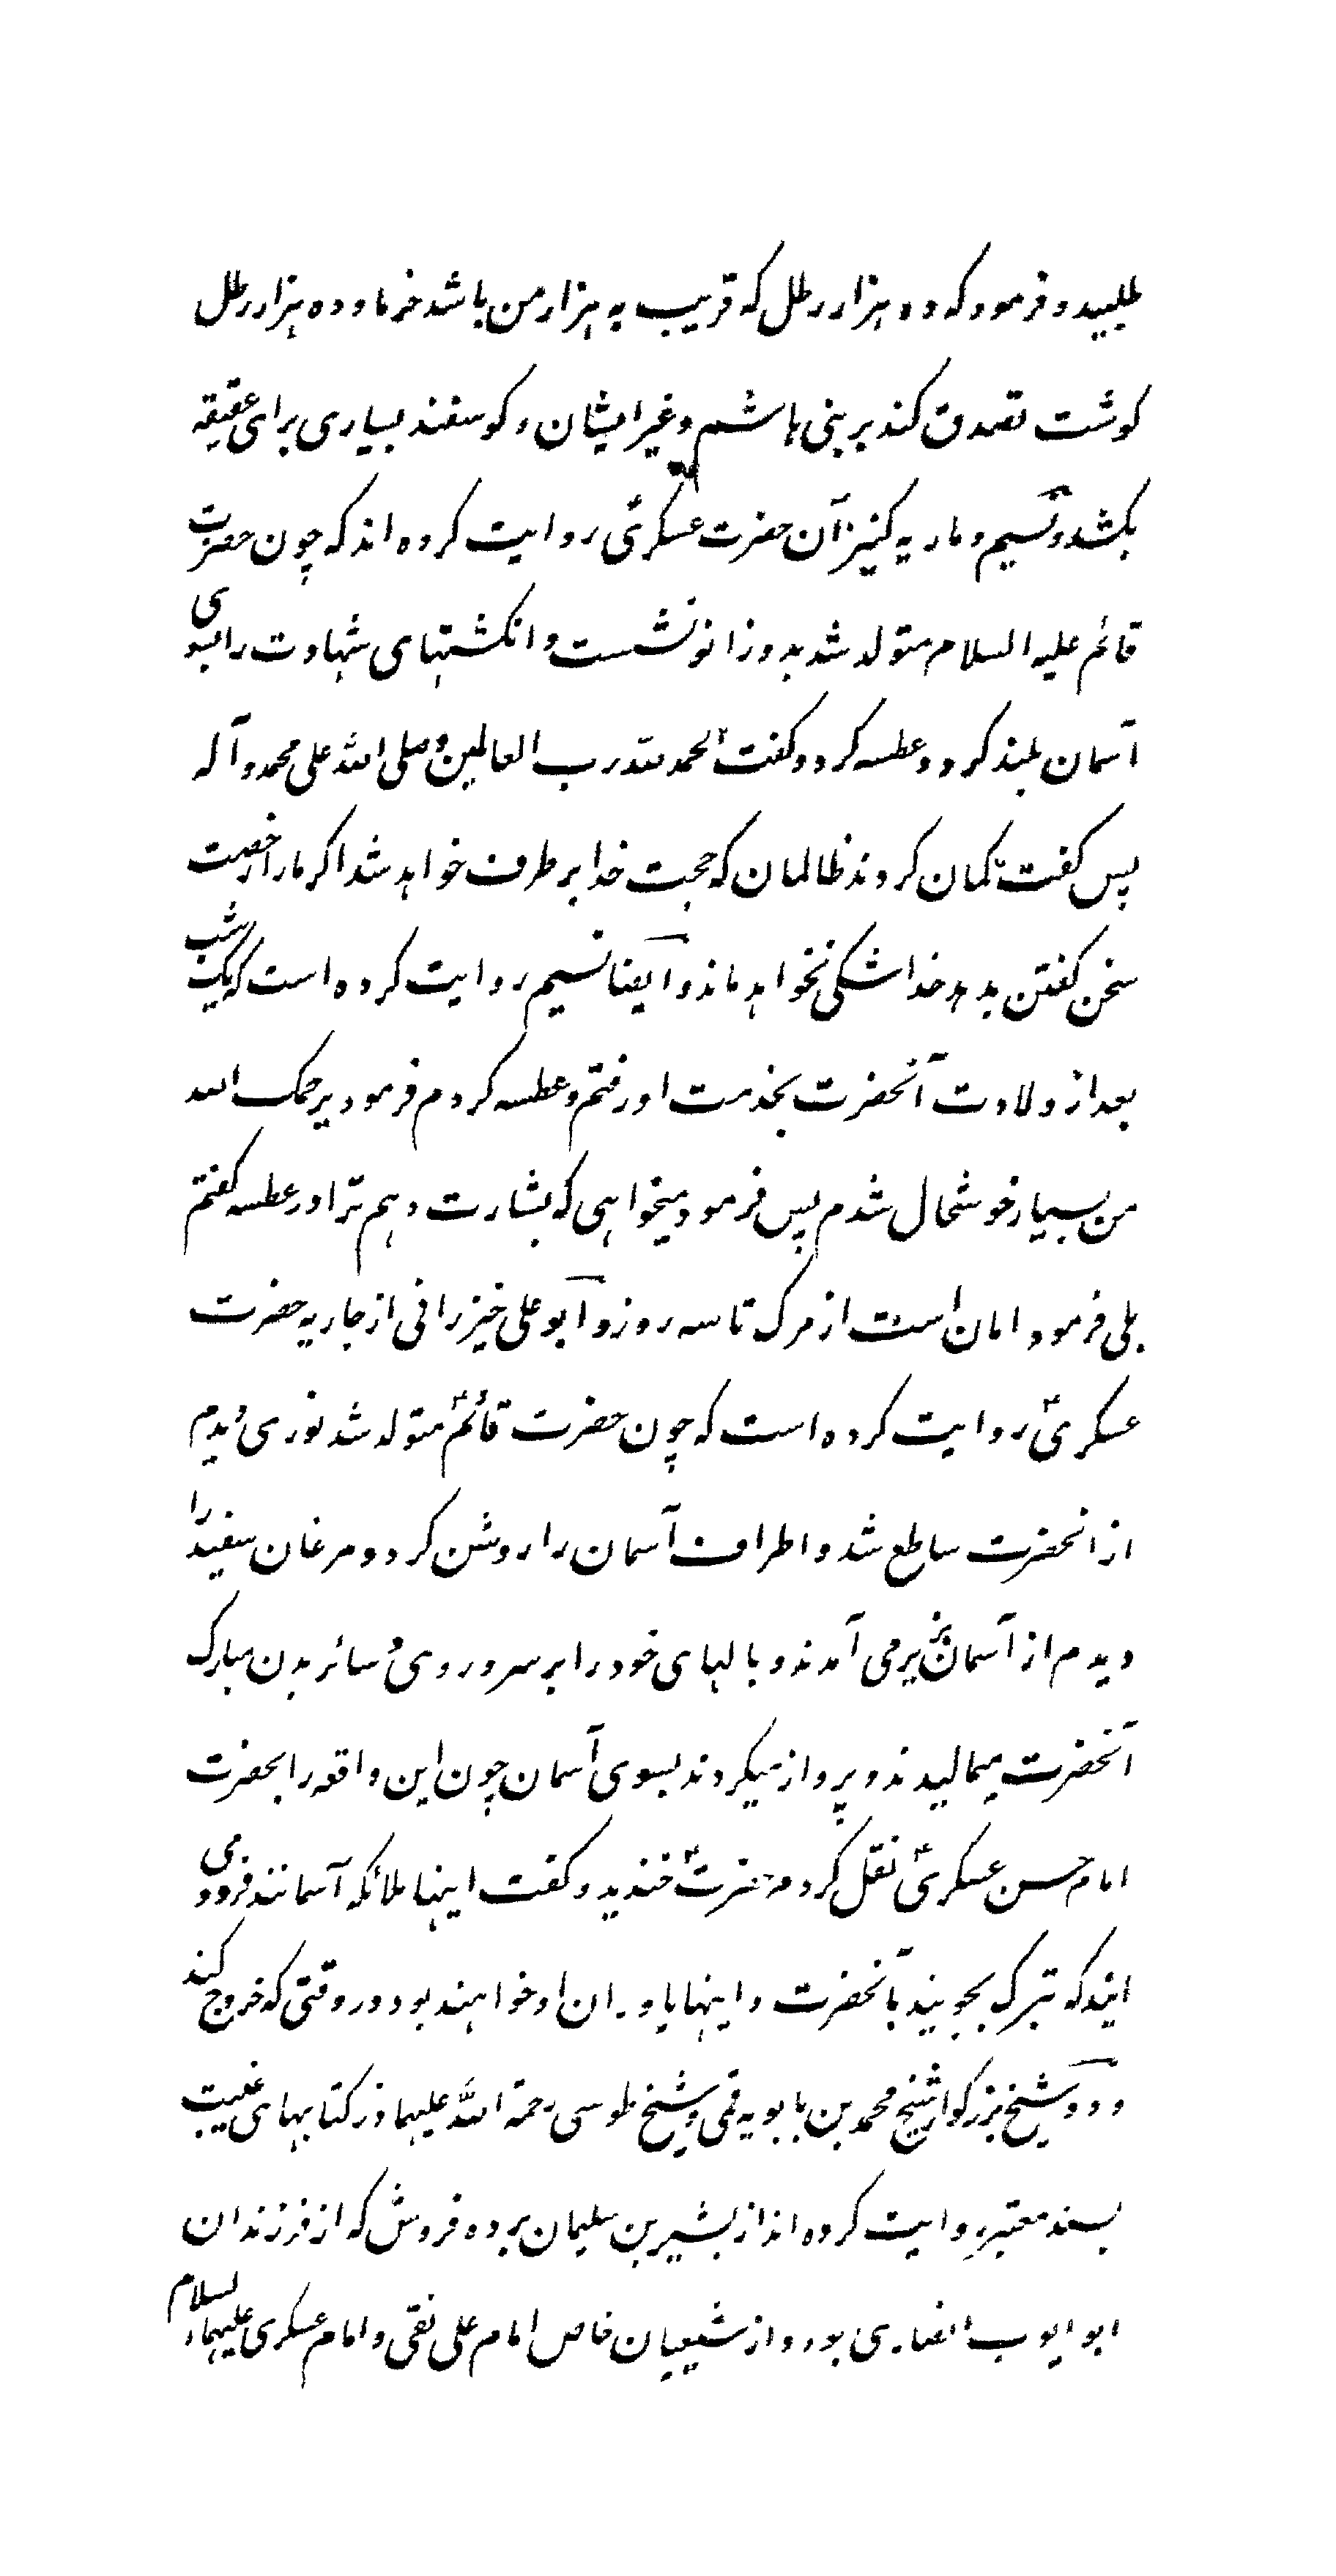 طلبید و فرمود که ده هزار رطل که قریب به هزار من باشد خرما و ده هزار رطل
کوشت تصدق کند بر بنی هاشم و غیر ایشان و کوسفند بسیاری برای عقیقه
بکشد و نسیم و ماریه کنیز آن حضرت عسکریؑ روایت کرده اند که چون حضرت
قائم علیه السلام متولد شد بدو زانو نشست و انکشتهای شهادت را بسوی
آسمان بلند کرد و عطسه کرد و کفت الحمد لله رب العالمین و صلی الله علی محمد و آله
پس کفت کمان کردند ظالمان که حجت خدا بر طرف خواهد شد اکر مارا رخصت
سخن کفتن بدهد خدا شکی نخواهد ماند و ایضا نسیم روایت کرده است که یک شب
بعد از ولادت آنحضرت بخدمت او رفتم و عطسه کردم فرمود یرحمک الله
من بسیار خوشحال شدم پس فرمود میخواهی که بشارت دهم ترا در عطسه کفتم
بلی فرمود امان است از مرک تا سه روز و ابو علی خیزرانی از جاریه حضرت
عسکریؑ روایت کرده است که چون حضرت قائمؑ متولد شد نوری دیدم
از انحضرت ساطع شد و اطراف آسمان را روشن کرد و مرغان سفید را
دیدم از آسمان بزیر می آمدند و بالهای خود را بر سر و روی و سائر بدن مبارک
آنحضرت میمالیدند و پرواز میکردند بسوی آسمان چون این واقعه را بحضرت
امام حسن عسکریؑ نقل کردم حضرتؑ خندید و کفت اینها ملائکه آسمانند فرود می
ایند که تبرک بجویند بآنحضرت و اینها یاوران او خواهند بود در وقتی که خروج کند
و دو شیخ بزرکوار شیخ محمد بن بابویه قمی و شیخ طوسی رحمة الله علیهما در کتابهای غیبت
بسند معتبر روایت کرده اند از بشیر بن سلیمان برده فروش که از فرزندان
ابو ایوب انصاری بود و از شیعیان خاص امام علی نقی و امام عسکری علیهما السلام